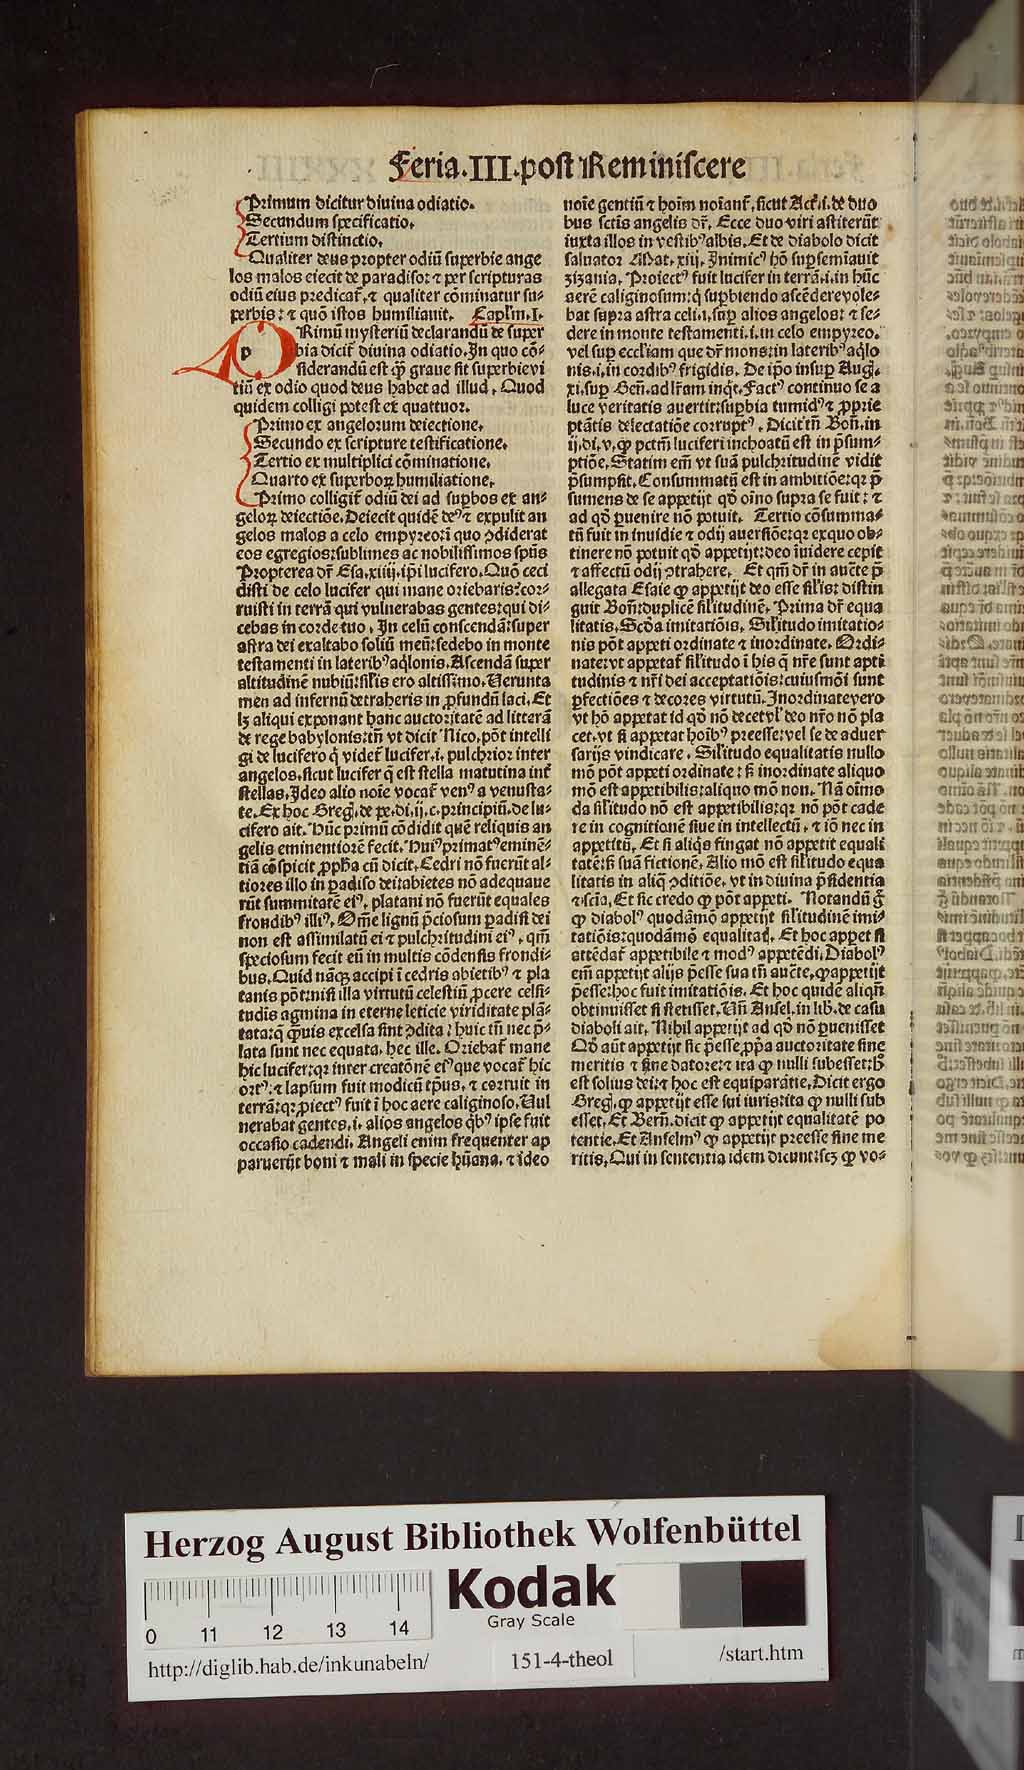 Feria.III.post Reminiscere
Primum dicitur diuina odiatio.
Secundum specificatio.
Tertium distinctio.
Qualiter deus propter odiũ superbie ange
los malos eiecit de paradiso: ⁊ per scripturas
odiũ eius predicat᷑, ⁊ qualiter cõminatur su⸗
perbis: ⁊ quõ istos humiliauit. Caplm̃.I.
PRimũ mysteriũ declarandũ de super
bia dicit᷑ diuina odiatio. In quo cõ⸗
siderandũ est ꝙ̃ graue sit superbie vi
tiũ ex odio quod deus habet ad illud. Quod
quidem colligi potest ex quattuor.
Primo ex angelorum deiectione.
Secundo ex scripture testificatione.
Tertio ex multiplici cõminatione.
Quarto ex superboꝝ humiliatione.
Primo colligit᷑ odiũ dei ad suꝑbos ex an⸗
geloꝝ deiectiõe. Deiecit quidẽ deꝰ ⁊ expulit an
gelos malos a celo empyreo: ĩ quo ꝯdiderat
eos egregios: sublimes ac nobilissimos spũs
Propterea dr̃ Esa.xiiij. ip̃i lucifero. Quõ ceci
disti de celo lucifer qui mane oriebaris: cor⸗
ruisti in terrã qui vulnerabas gentes: qui di⸗
cebas in corde tuo. In celũ conscendã: super
astra dei exaltabo soliũ meũ: sedebo in monte
testamenti in laterib⁹ aq̃lonis. Ascendã super
altitudinẽ nubiũ: sil̃is ero altissimo. Verunta
men ad infernũ detraheris in ꝓfundũ laci. Et
lꝫ aliqui exponant hanc auctoritatẽ ad litterã
de rege babylonis: tñ vt dicit Nico. põt intelli
gi de lucifero q̃ videt᷑ lucifer.i. pulchrior inter
angelos. sicut lucifer q̃ est stella matutina int᷑
stellas. Ideo alio noĩe vocat᷑ venꝰ a venusta⸗
te. Ex hoc Greg̃. de pe. di.ij.c. principiũ. de lu⸗
cifero ait. Hũc primũ cõdidit quẽ reliquis an
gelis eminentiorẽ fecit. Huiꝰ primatꝰ eminẽ⸗
tiã cõspicit ꝓpha cũ dicit. Cedri nõ fuerũt al⸗
tiores illo in ꝑadiso dei: abietes nõ adequaue
rũt summitatẽ eiꝰ. platani nõ fuerũt equales
frondibꝰ illiꝰ. Om̃e lignũ p̃ciosum ꝑadisi dei
non est assimilatũ ei ⁊ pulchritudini eiꝰ. qm̃
speciosum fecit eũ in multis cõdensis frondi⸗
bus. Quid nãqꝫ accipi ĩ cedris abietibꝰ ⁊ pla
tanis põt: nisi illa virtutũ celestiũ ꝓcere celsi⸗
tudis agmina in eterne leticie viriditate plã⸗
tata: q̃ q̃uis excelsa sint ꝯdita: huic tñ nec p̃⸗
lata sunt nec equata. hec ille. Oriebat᷑ mane
hic lucifer: qr inter creatõnẽ eiꝰ que vocat᷑ hic
ortꝰ: ⁊ lapsum fuit modicũ tp̃us. ⁊ corruit in
terrã: qr ꝓiectꝰ fuit ĩ hoc aere caliginoso. Vul
nerabat gentes.i. alios angelos qbꝰ ipse fuit
occasio cadendi. Angeli enim frequenter ap
paruerũt boni ⁊ mali in specie hũana. ⁊ ideo
noĩe gentiũ ⁊ hoĩm noĩant᷑. sicut Act᷑.i. de duo
bus sctĩs angelis dr̃. Ecce duo viri astiterũt
iuxta illos in vestibꝰ albis. Et de diabolo dicit
saluator Mat. xiij. Inimicꝰ hõ suꝑsemĩauit
zizania. Proiectꝰ fuit lucifer in terrã.i. in hũc
aerẽ caliginosum: q̃ suꝑbiendo ascẽdere vole⸗
bat supra astra celi.i. suꝑ alios angelos: ⁊ se⸗
dere in monte testamenti.i. in celo empyreo.
vel suꝑ eccl̃iam que dr̃ mons: in lateribꝰ aq̃lo
nis.i. in cordibꝰ frigidis. De ip̃o insuꝑ Aug̃.
xi. suꝑ Geñ. ad lr̃am inq̃t. Factꝰ continuo se a
luce veritatis auertit: suꝑbia tumidꝰ ⁊ ꝓprie
ptãtis delectatiõe corruptꝰ. Dicit tñ Boñ. in
ij. di. v. ꝙ pctm̃ luciferi inchoatũ est in p̃sum⸗
ptiõe. Statim em̃ vt suã pulchritudinẽ vidit
p̃sumpsit. Consummatũ est in ambitiõe: qr p̃
sumens de se appetijt qð oĩno supra se fuit: ⁊
ad qð ꝑuenire nõ potuit. Tertio cõsumma⸗
tũ fuit in inuidie ⁊ odij auersiõe: qr ex quo ob⸗
tinere nõ potuit qð appetijt: deo ĩuidere cepit
⁊ affectũ odij ꝯtrahere. Et qm̃ dr̃ in auc̃te p̃
allegata Esaie ꝙ appetijt deo esse sil̃is: distin
guit Boñ. duplicẽ sil̃itudinẽ. Prima dr̃ equa
litatis. Scða imitatiõis. Sil̃itudo imitatio⸗
nis põt appeti ordinate ⁊ inordinate. Ordi⸗
nate: vt appetat᷑ sil̃itudo ĩ his q̃ nr̃e sunt apti
tudinis ⁊ nr̃i dei acceptatiõis: cuiusmõi sunt
ꝑfectiões ⁊ decores virtutũ. Inordinate vero
vt hõ appetat id qð nõ decet vl̃ deo nr̃o nõ pla
cet. vt si appetat hoĩbꝰ preesse: vel se de aduer
sarijs vindicare. Sil̃itudo equalitatis nullo
mõ põt appeti ordinate: sꝫ inordinate aliquo
mõ est appetibilis: aliquo mõ non. Nã oĩmo
da sil̃itudo nõ est appetibilis: qr nõ põt cade
re in cognitionẽ siue in intellectũ. ⁊ iõ nec in
appetitũ. Et si aliq̃s fingat nõ appetit equali
tatẽ: sꝫ suã fictionẽ. Alio mõ est sil̃itudo equa
litatis in aliq̃ ꝯditiõe. vt in diuina p̃sidentia
⁊ scĩa. Et sic credo ꝙ põt appeti. Notandũ g̃
ꝙ diabolꝰ quodãmõ appetijt sil̃itudinẽ imi⸗
tatiõis: quodãmõ equalitatꝭ. Et hoc apꝑet si
attẽdat᷑ appetibile ⁊ modꝰ appetẽdi. Diabolꝰ
em̃ appetijt alijs p̃esse sua tñ auc̃te. ꝙ appetijt
p̃esse: hoc fuit imitatiõis. Et hoc quidẽ aliqñ
obtinuisset si stetisset. Vñ Ansel. in lib. de casu
diaboli ait. Nihil appetijt ad qð nõ ꝑuenisset
Qð aũt appetijt sic p̃esse ꝓpria auctoritate sine
meritis ⁊ sine datore: ⁊ ita ꝙ nulli subesset: h̃
est solius dei: ⁊ hoc est equiparãtie. Dicit ergo
Greg̃. ꝙ appetijt esse sui iuris: ita ꝙ nulli sub
esset. Et Berñ. dicit ꝙ appetijt equalitatẽ po
tentie. Et Anselmꝰ ꝙ appetijt preesse sine me
ritis. Qui in sententia idem dicunt: scꝫ ꝙ vo⸗
Herzog August Bibliothek Wolfenbüttel
Kodak
Gray Scale
0 11 12 13 14
http://diglib.hab.de/inkunabeln/
151-4-theol
/start.htm